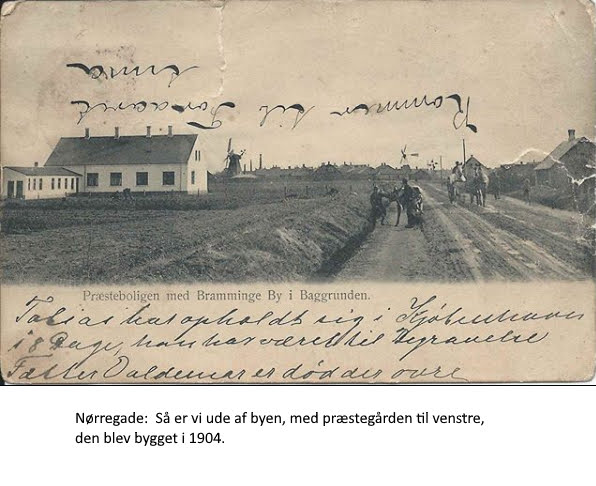 Kommer til Foraaret
Emma
Præsteboligen med Bramminge By i Baggrunden.
Tobias har opholdt sig i Kjøbenhavn
i 8 Dage, han har været til Begravelse
Fætter Valdemar er død derovre
Nørregade: Så er vi ude af byen, med præstegården til venstre,
den blev bygget i 1904.